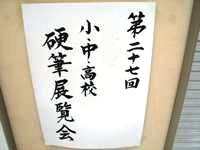 第二十七回
小・中・高校
硬筆展覧会